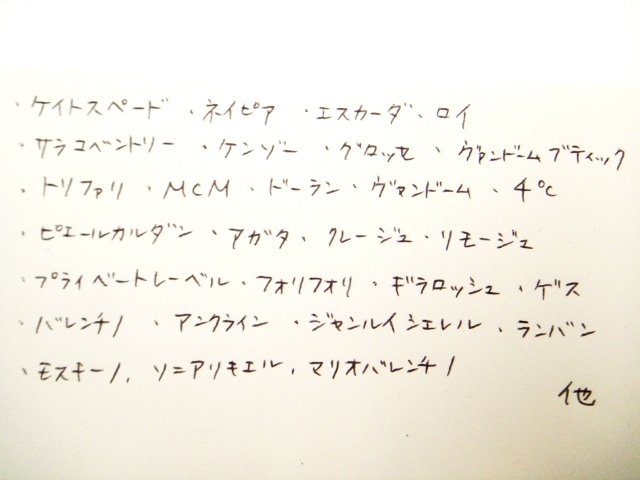 ・ケイトスペード ・ネイピア ・エスカーダ ・ロイ
・サラコベントリー ・ケンゾー ・グロッセ ・ヴァンドームブティック
・トリファリ ・MCM ・ドーラン ・ヴァンドーム ・4℃
・ピエールカルダン ・アガタ ・クレージュ ・リモージュ
・プライベートレーベル ・フォリフォリ ・ギラロッシュ ・ゲス
・バレンチノ ・アンクライン ・ジャンルイシェレル ・ランバン
・モスキーノ、ソニアリキエル、マリオバレンチノ
他